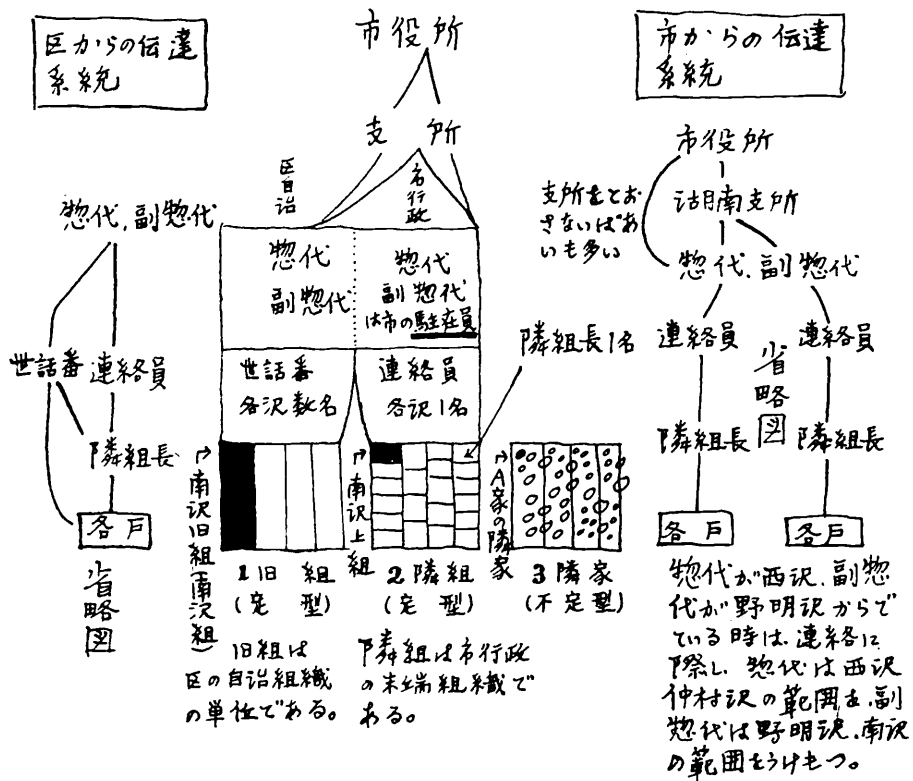 区からの伝達
系統
惣代、副惣代
世話番
連絡員
隣組長
各戸
省略図
市役所
支所
区自治
市行政
惣代
副惣代
惣代
副惣代
は市の駐在員
世話番
各沢数名
連絡員
各沢1名
隣組長1名
南沢旧組(南沢組)
南沢上組
A家の隣家
1旧組
(定型)
2隣組
(定型)
3隣家
(不定型)
旧組は
区の自治組織
の単位である。
隣組は市行政
の末端組織で
ある。
市からの伝達
系統
市役所
湖南支所
支所をとお
さないばあ
いも多い
惣代、副惣代
連絡員
連絡員
省略図
隣組長
隣組長
各戸
各戸
惣代が西沢、副惣
代が野明沢からで
ている時は、連絡に
際し、惣代は西沢
仲村沢の範囲を、副
惣代は野明沢、南沢
の範囲をうけもつ。